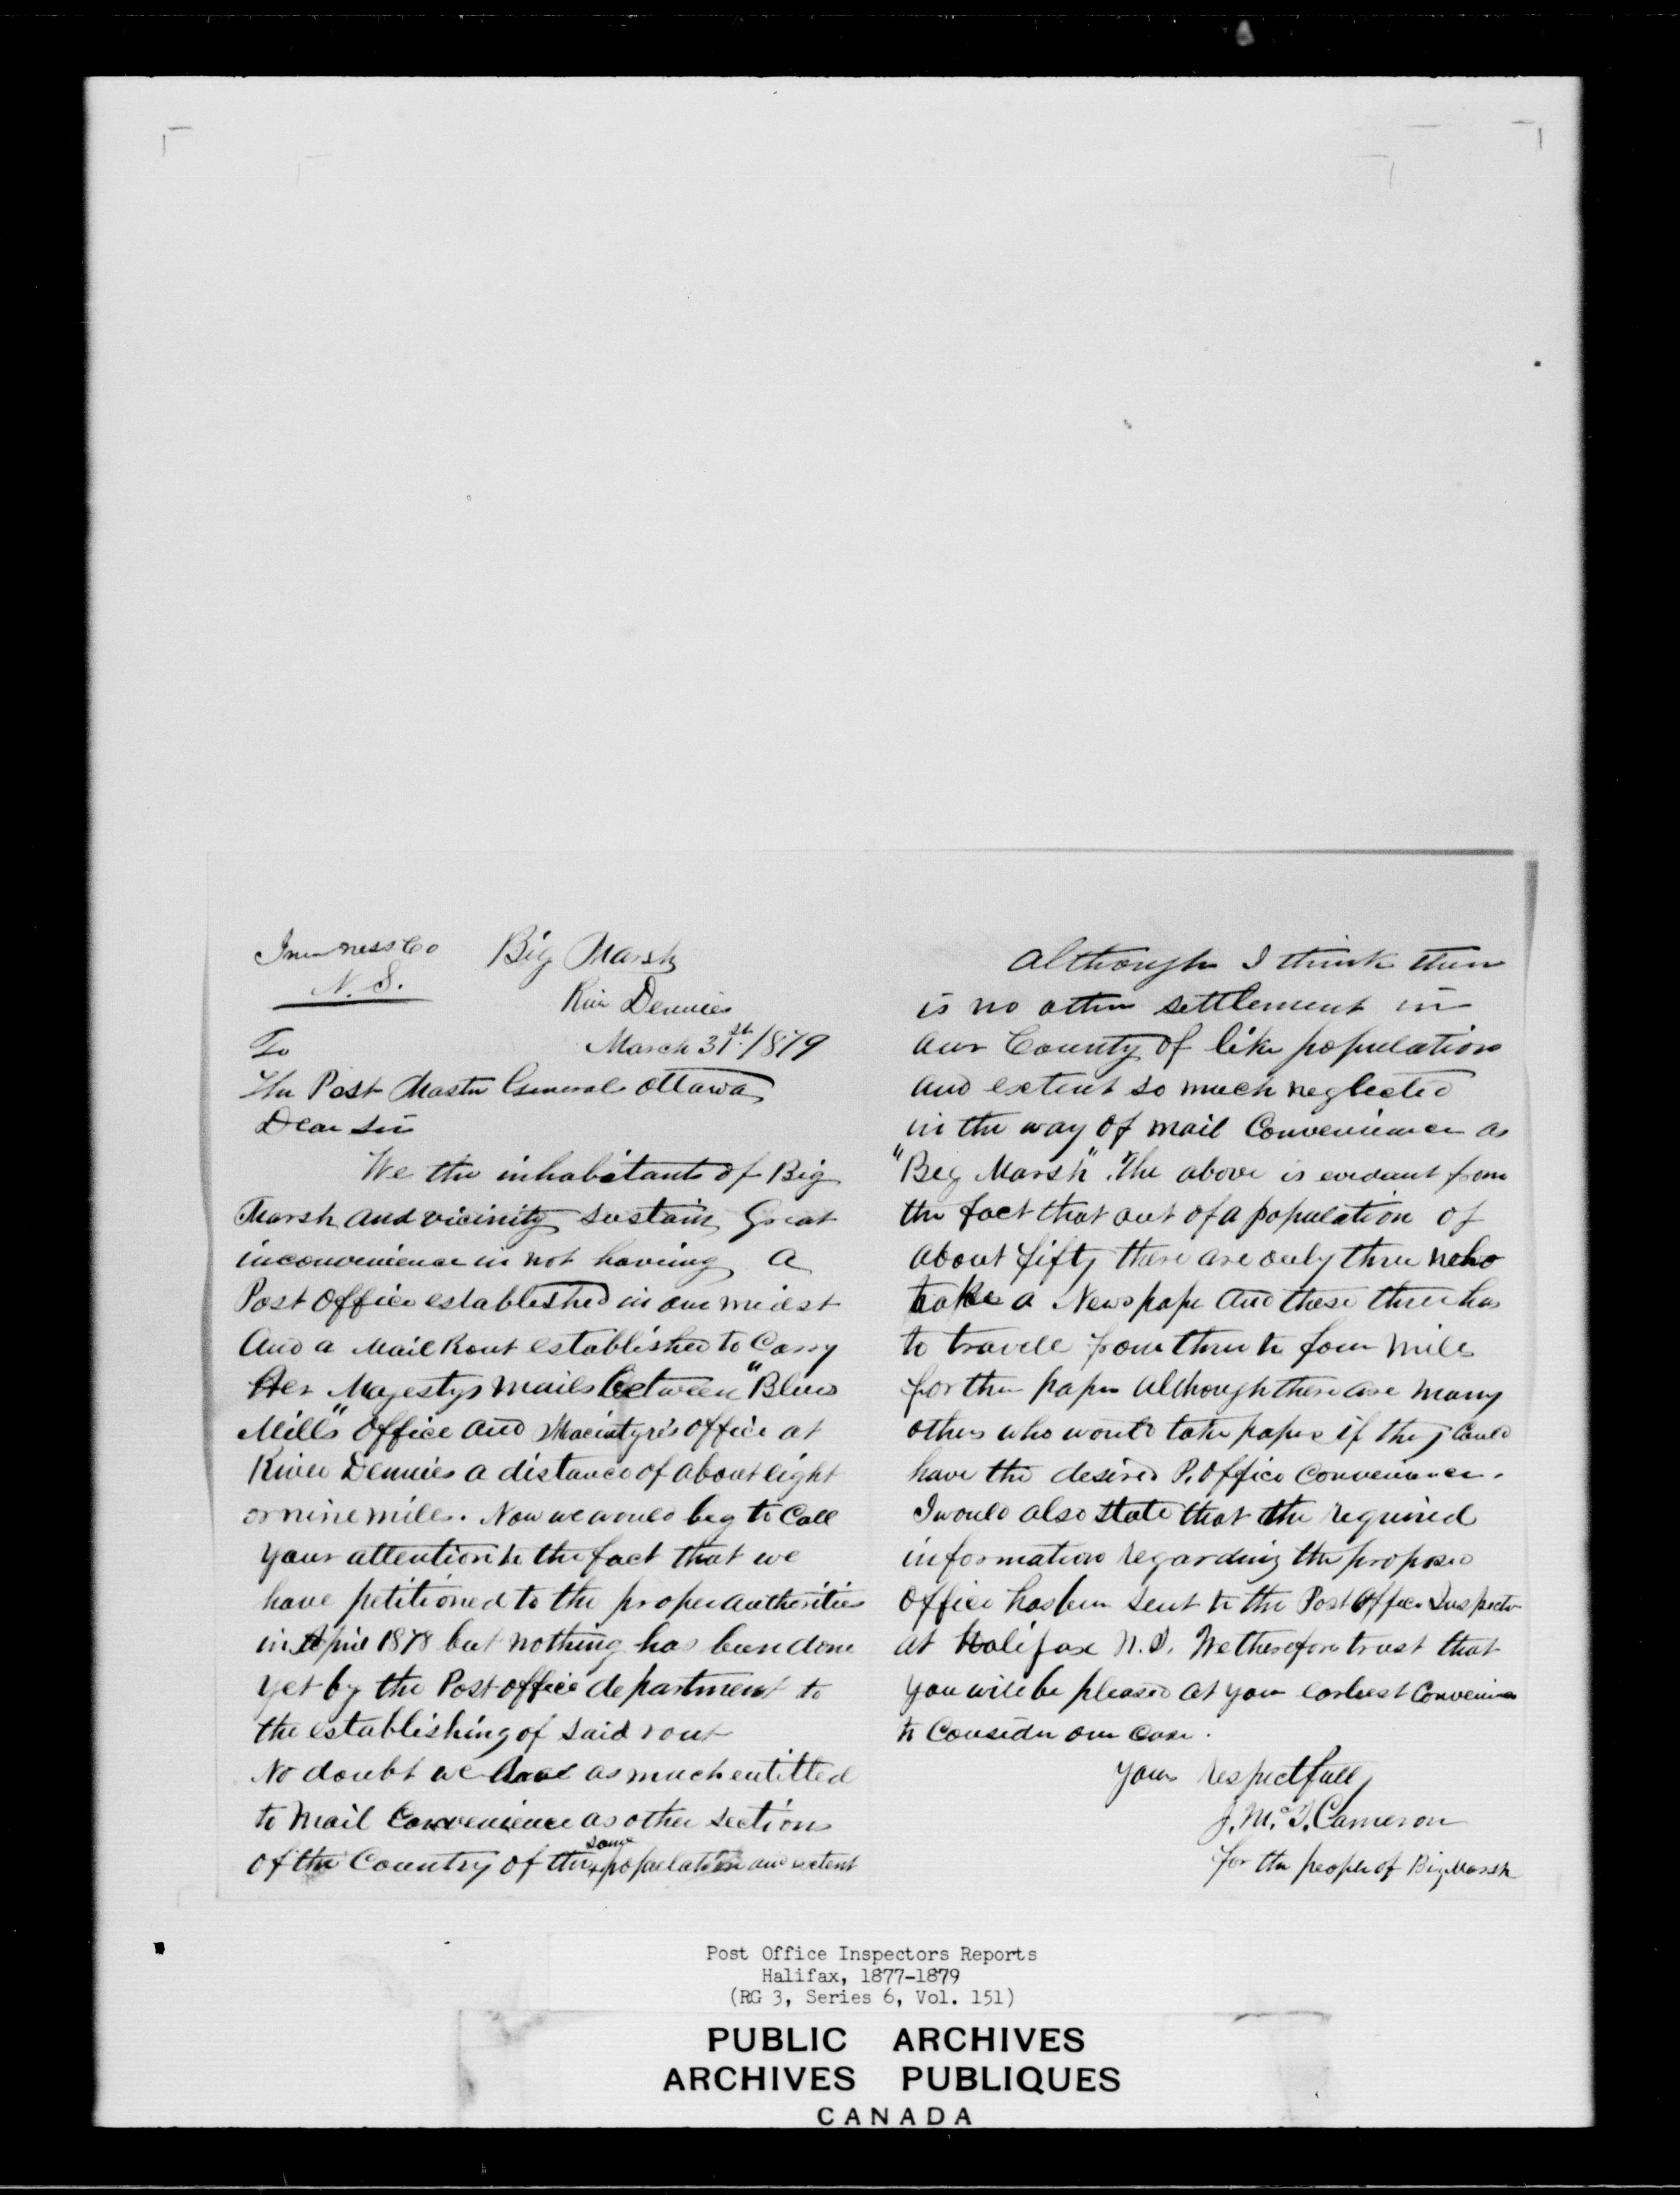 Inverness Co
N. S.
Big Marsh
River Dennies
March 31st/1879
To
The Post Master General Ottawa
Dear Sir
We the inhabitants of Big
Marsh and vicinity sustain Great
inconvenience in not having a
Post Office established in our midst
And a Mail Rout established to Carry
Her Majestys mails between "Blues
Mills" Office and Macintyre's office at
River Dennies a distance of about eight
or nine miles. Now we would beg to Call
your attention to the fact that we
have petitioned to the proper authorities
in April 1878 but nothing has been done
yet by the Post office department to
the establishing of said rout
No doubt we are as much entitled
to Mail Convenience as other sections
of the Country of the same population and extent
Although I think there
is no other settlement in
our County of like population
and extent so much neglected
in the way of mail Convenience as
"Beg Marsh". The above is evedent from
the fact that out of a population of
about fifty there are only three who
take a Newspaper And these three has
to travele from three to four miles
for their paper Although there are many
others who would take papers if they Could
have the desired P. Office Convenience.
I would also state that the required
information regarding the proposed
Office has been sent to the Post Office Inspector
at Halifax N.S. We therefore trust that
you will be pleased at your earliest Convenience
to Consider our Case.
Yours Respectfully
J. McI. Cameron
for the people of Big Marsh
Post Office Inspectors Reports
Halifax, 1877-1879
(RG 3, Series 6, Vol. 151)
PUBLIC ARCHIVES
ARCHIVES PUBLIQUES
CANADA